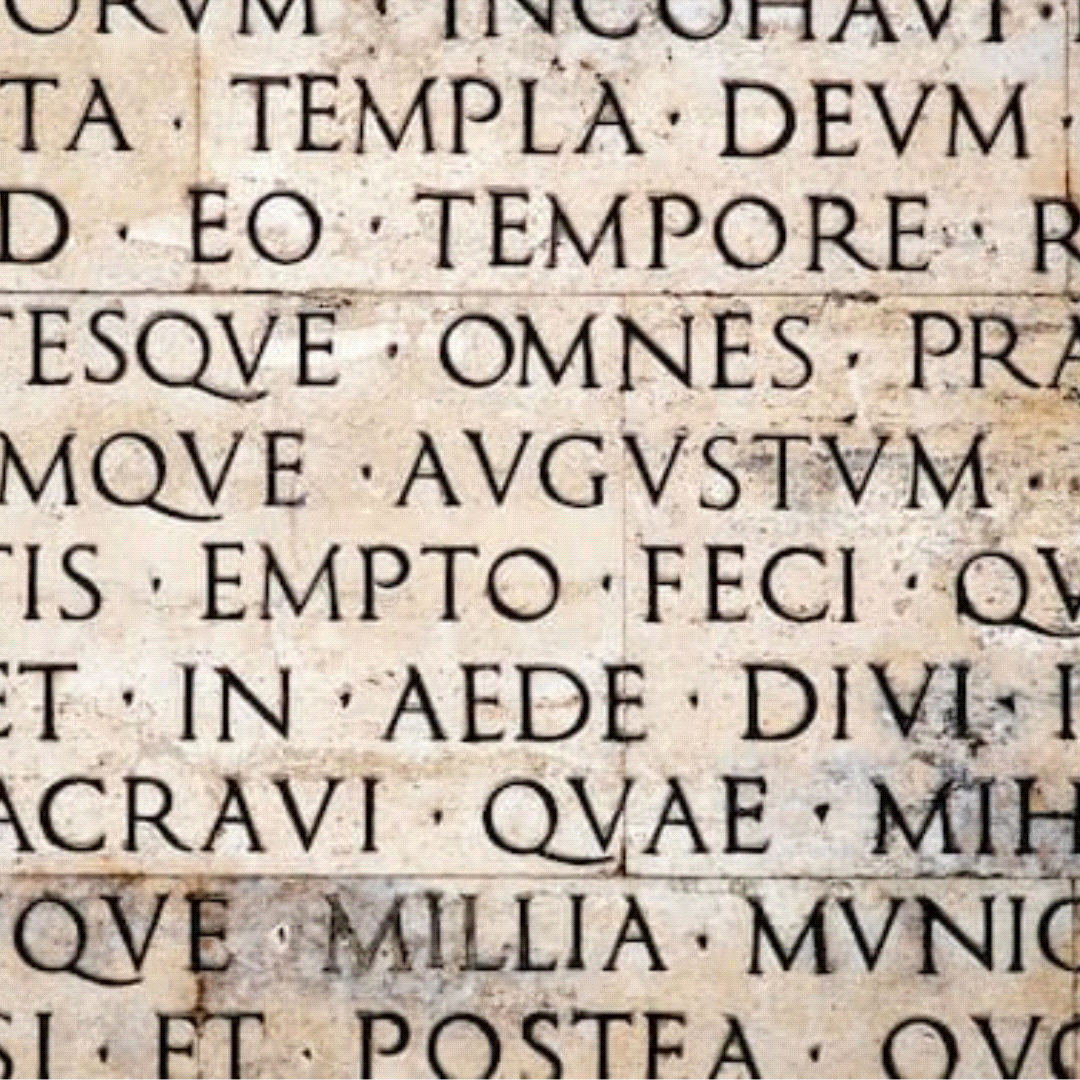 ORVM · INCOHAVI ·
TA · TEMPLA · DEVM ·
D · EO · TEMPORE · R
TESQVE · OMNES · PRA
MQVE · AVGVSTVM ·
TIS · EMPTO · FECI · QV
ET · IN · AEDE · DIVI · I
ACRAVI · QVAE · MIH
QVE · MILLIA · MVNIC
SI · ET · POSTEA · QVO